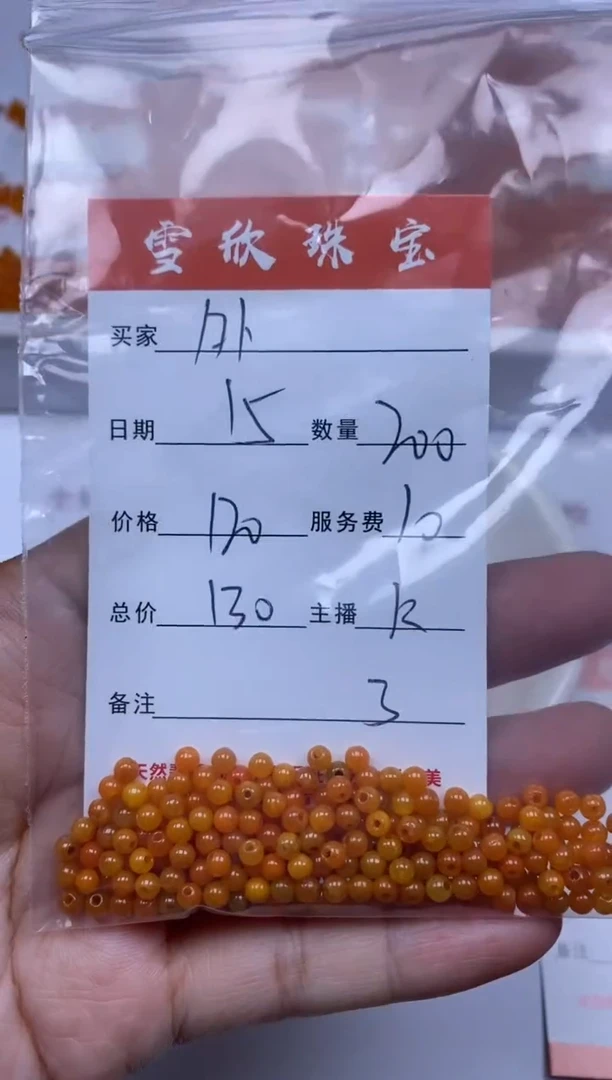 雪欣珠宝
买家
日期 15 数量 200
价格 120 服务费 10
总价 130 主播 K
备注 3
天然 美
备注